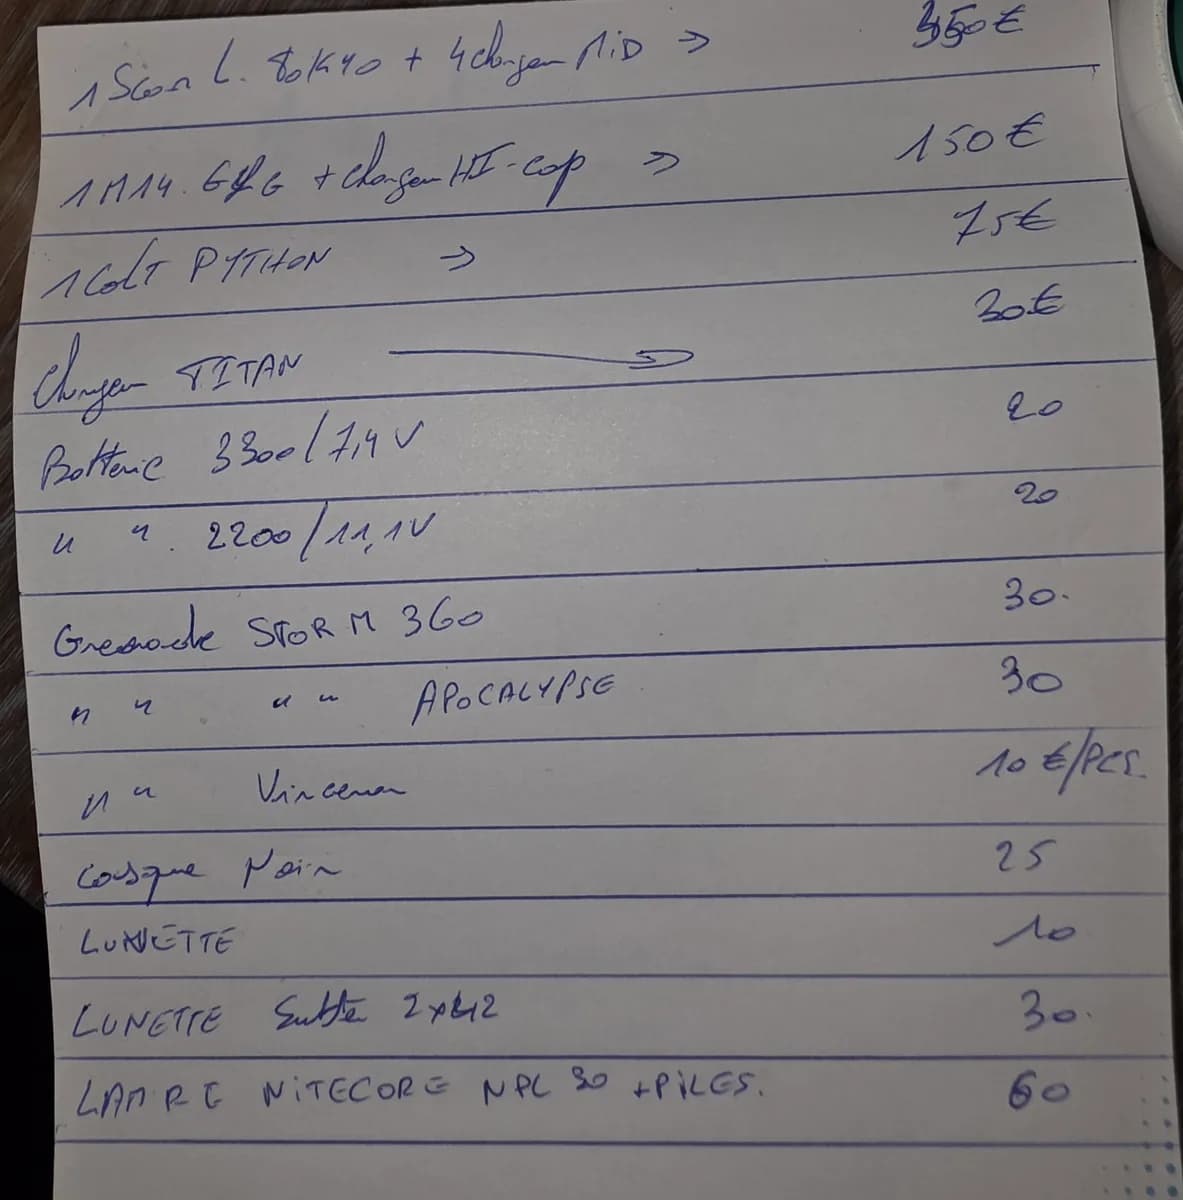 1 Scar L. TOKYO + 4 chargeur MiD → 350€
1 M14. G&G + chargeur HI-cap → 150€
1 COLT PYTHON → 75€
Chargeur TITAN → 30€
Batterie 3300/7,4V 20
" " . 2200/11,1V 20
Grenade STORM 360 30.
" " " " APOCALYPSE 30
" " 10€/PCS.
Casque Noir 25
LUNETTE 10
LUNETTE 30.
LAMPE NiTECORE 30 +PiLES. 60